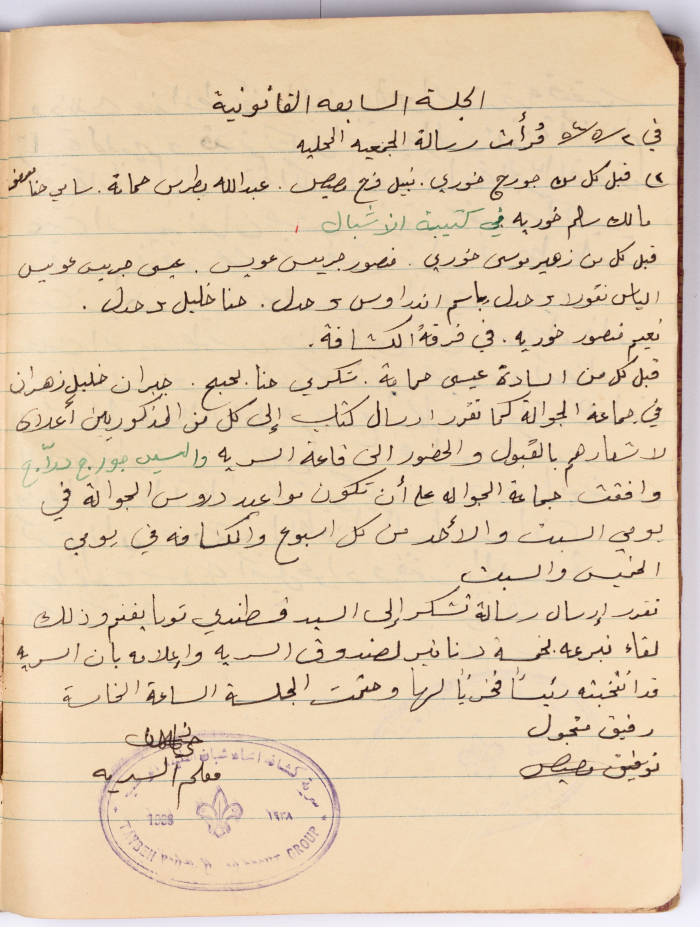 الجلسة السابعه القانونية
في ٢/٥/٥٤ قُرأت رسالة الجمعيه المحليه
٢) قبل كل من جورج خوري. نبيل فرح بصيص. عبدالله بطرس حمانة. سامي حنا
مالك سالم خوريه في كتيبة الاشبال
قبل كل من زهير موسى خوري. منصور جريس عويس. عيسى جريس عويس
الياس نقولا باسم اندراوس. حنا خليل.
نعيم منصور خوريه. في فرقة الكشافة.
قبل كل من السادة عيسى حماية. شكري حنا بحبح. جبران خليل زهران
في جماعة الجوالة كما تقرر ارسال كتاب إلى كل من المذكورين أعلاه
لاشعارهم بالقبول والحضور الى قاعة السريه والسيد جورج
وافقت جماعة الجواله على أن تكون مواعيد دروس الجوالة في
يومي السبت والأحد من كل اسبوع والكشافه في يومي
الخميس والسبت
تقرر إرسال رسالة تشكر إلى السيد قسطندي توما يغنم وذلك
لقاء تبرعه بخمسة دنانير لصندوق السريه وإعلامه بأن السريه
قد انتخبته رئيساً فخرياً لها وختمت الجلسة الساعة الخامسة
رفيق متجول
توفيق بصيص
معلم السريه
سرية كشافة شبان
1938 ١٩٣٨
TAYBEH GROUP